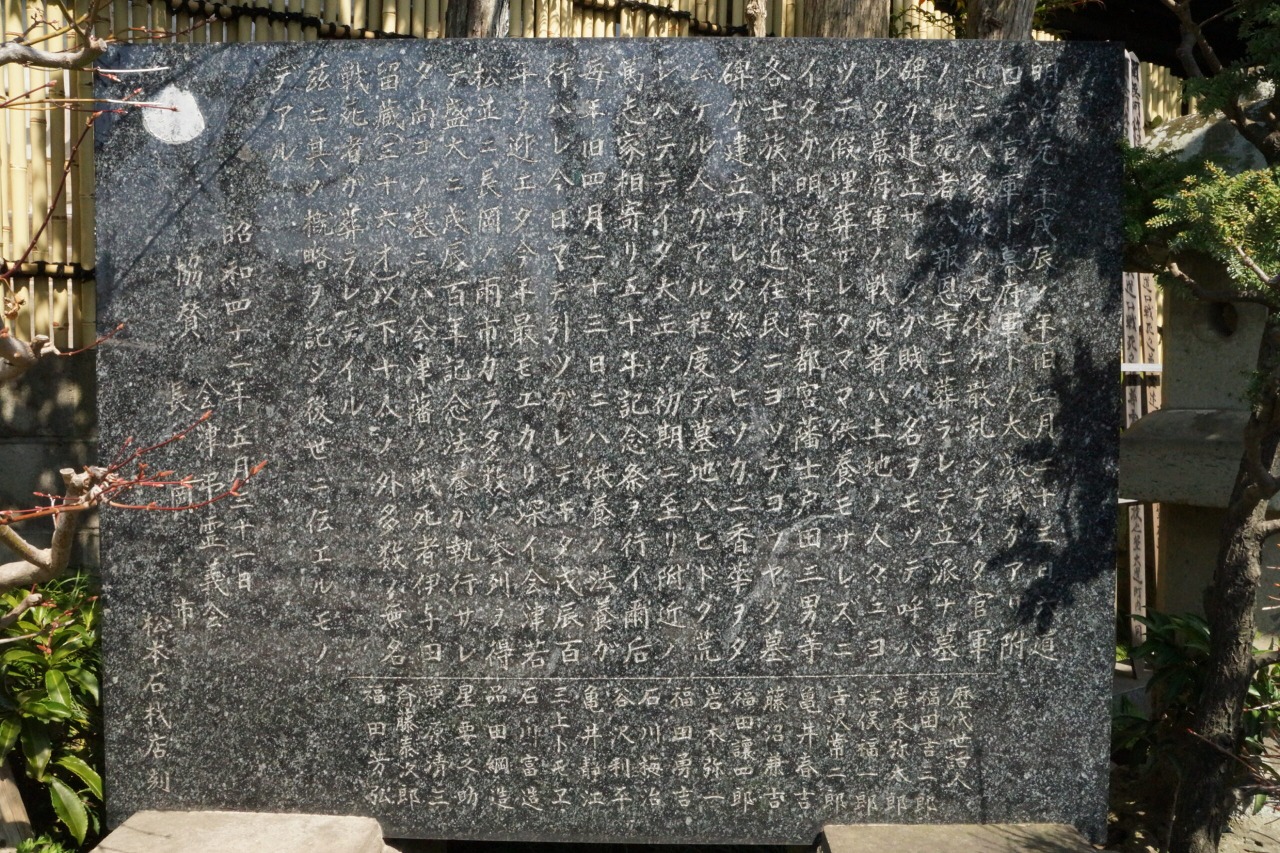 明治元年戊辰ノ年旧四月二十三日六道
口デ官軍ト幕府軍トノ大激戦ガアリ附
近ニハ多数ノ死体ガ散乱シテイタ官軍
ノ戦死者ハ報恩寺ニ葬ラレテ立派ナ墓
碑ガ建立サレノガ賊ノ名ヲモッテ呼バ
レタ幕府軍ノ戦死者ハ土地ノ人々ニヨ
ツテ假埋葬サレタママ供養モサレズニ
イタガ明治七年宇都宮藩士戸田三男等
各士族ト附近住民ニヨツテヨウヤク墓
碑ガ建立サレタ然シヒソカニ香華ヲタ
ムケル人ガアル程度デ墓地ハヒドク荒
レハテテイタ大正ノ初期ニ至リ附近ノ
篤志家相寄リ五十年記念祭ヲ行イ爾后
毎年旧四月二十三日ニハ供養ノ法養ガ
行ハレ今日マデ引ツガレテキタ戊辰百
年ヲ迎エタ今年最モユカリ深イ会津若
松並ニ長岡ノ両市カラ多数ノ参列ヲ得
テ盛大ニ戊辰百年記念法養が執行サレ
タ尚コノ墓ニハ会津藩ノ戦死者伊与田
留蔵三十六才以下十人ノ外多数ノ無名
戦死者が葬ラレテイル
茲ニ其ノ概略ヲ記シ後世ニ伝エルモノ
デアル
昭和四十二年五月三十一日
協賛 会津弔霊義会
長岡市
松本石材店刻
歴代世話人
福田吉二郎
岩本弥太郎
福一郎
吉沢常一郎
亀井春吉
藤沼兼吉
福田讓四郎
岩本弥一
福田勇吉
石川梅治
谷沢利平
亀井静江
三上ト
石川富造
品田綱造
星要之助
原清三
斉藤素次郎
福田芳弘